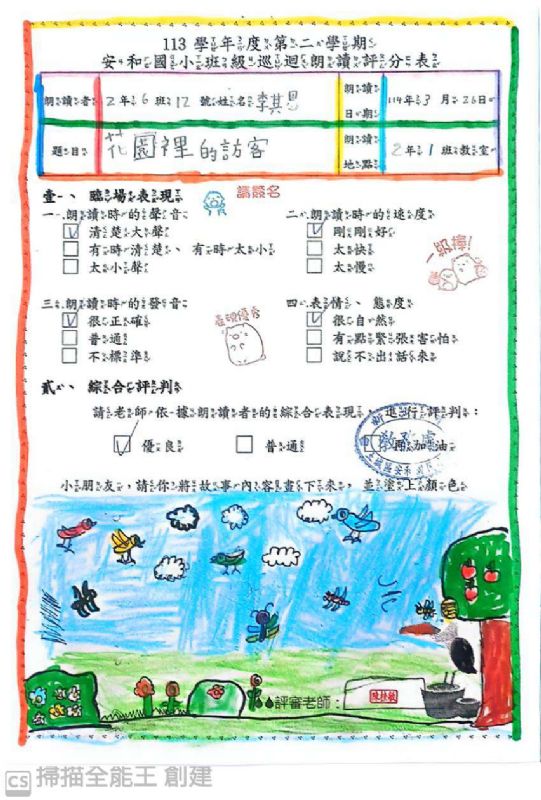 113學年度第二學期
安和國小班級巡迴朗讀評分表
朗讀者 2年6班12號姓名李其恩 朗讀日期 114年3月26日
題目 花園裡的訪客 朗讀地點 2年1班教室
壹、臨場表現 請簽名
一、朗讀時的聲音 二、朗讀時的速度
清楚大聲 剛剛好
有時清楚、有時太小 太快
太小聲 太慢
一級棒!
三、朗讀時的發音 四、表情、態度
很正確 很自然
普通 有點緊張害怕
不標準 說不出話來
表現優秀
貳、綜合評判
請老師依據朗讀者的綜合表現,進行評判:
優良 普通 再加油
教務處
小朋友,請你將故事內容畫下來,並塗上顏色
評審老師:
CS 掃描全能王 創建